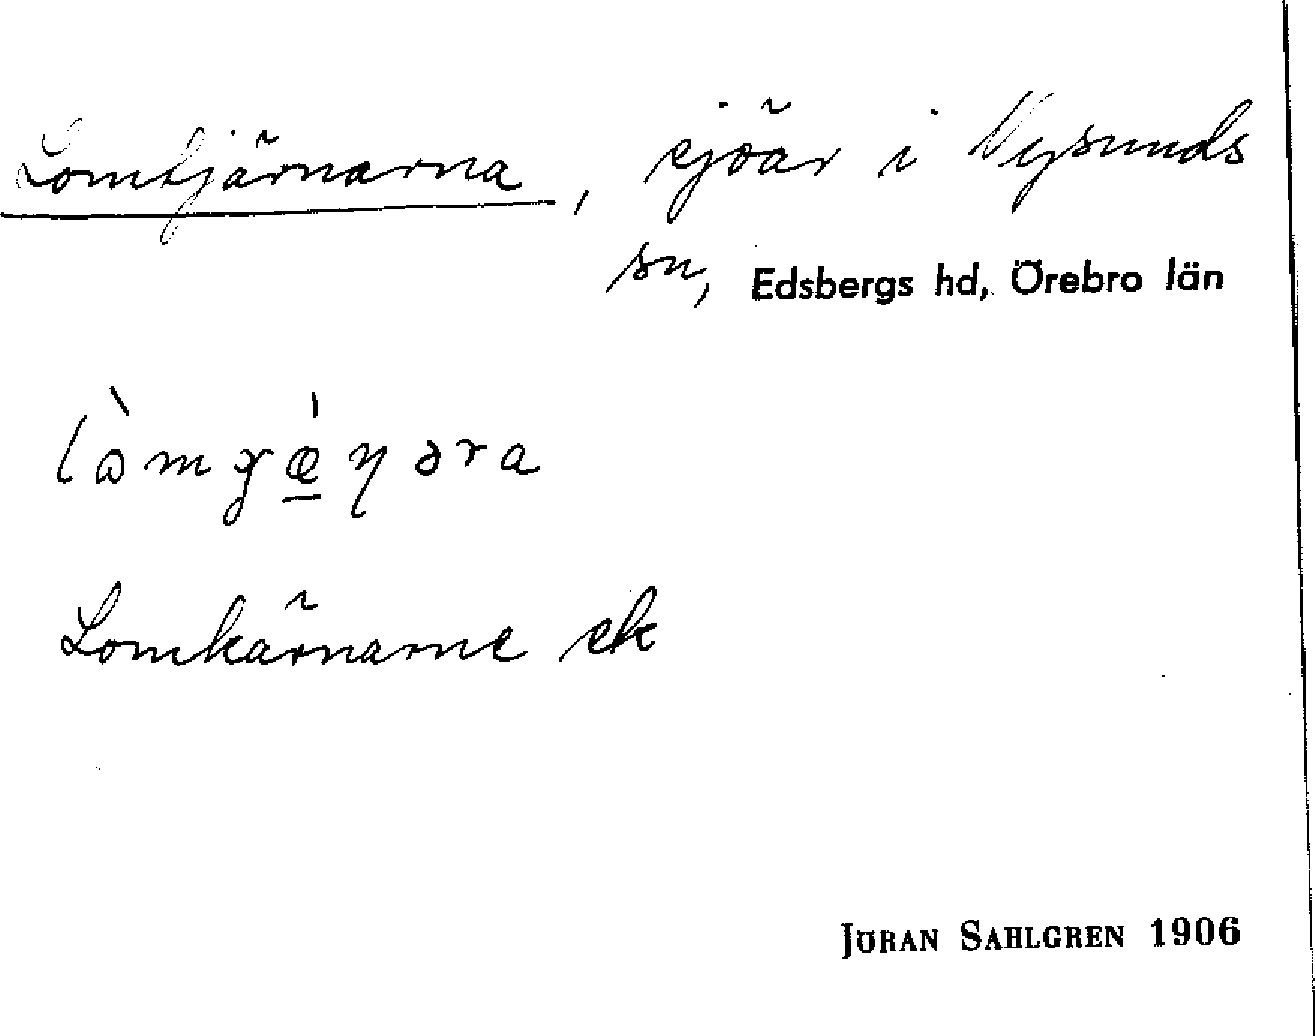 Lomtjärnarna, sjöar i Nysunds
sn, Edsbergs hd, Örebro län
Lomkärnarne ek
JÖRAN SAHLGREN 1906